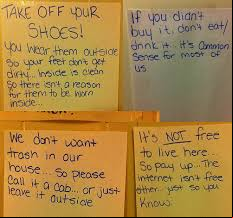 TAKE OFF YOUR
SHOES!
You wear them outside
so your feet don't get
dirty... Inside is clean
so there isn't a reason
for them to be worn
inside...
If you didn't
buy it, don't eat/
drink it... it's Common
Sense for most of
us
We don't want
trash in our
house... So please
Call it a cab... or just
leave it outside
It's NOT free
to live here...
So pay up... The
internet isn't free
either.. just so you
Know.